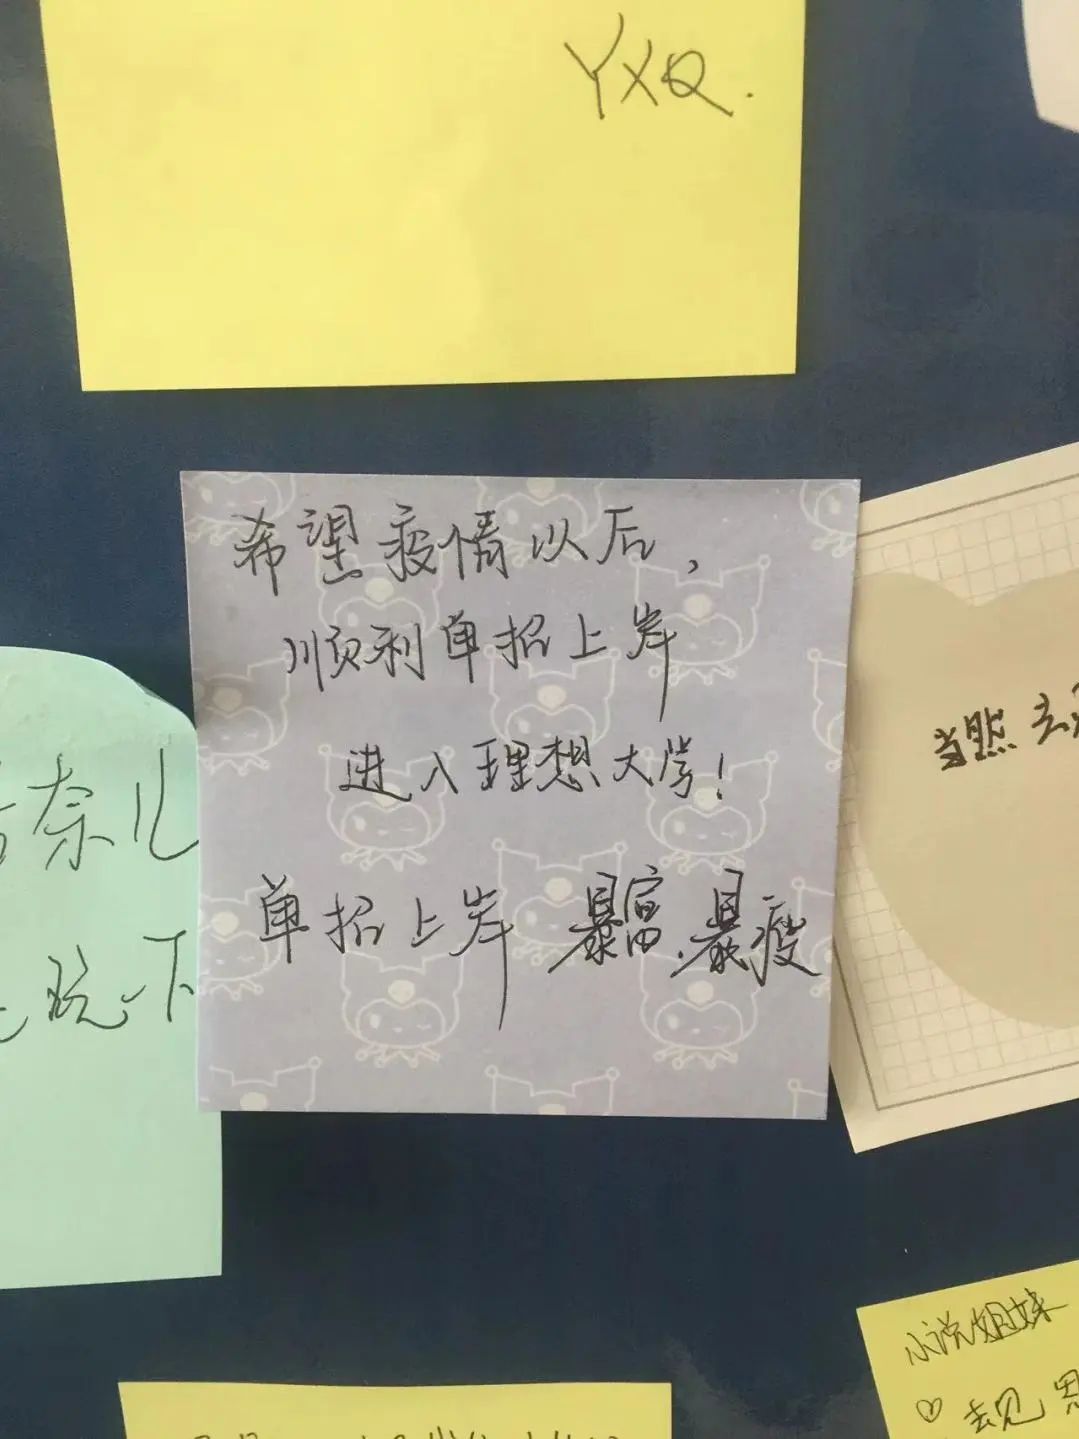 YXQ.
希望疫情以后，
顺利单招上岸
进入理想大学！
单招上岸 暴富、暴瘦
奈儿
玩一下
当然去
小说姐妹
♡去见